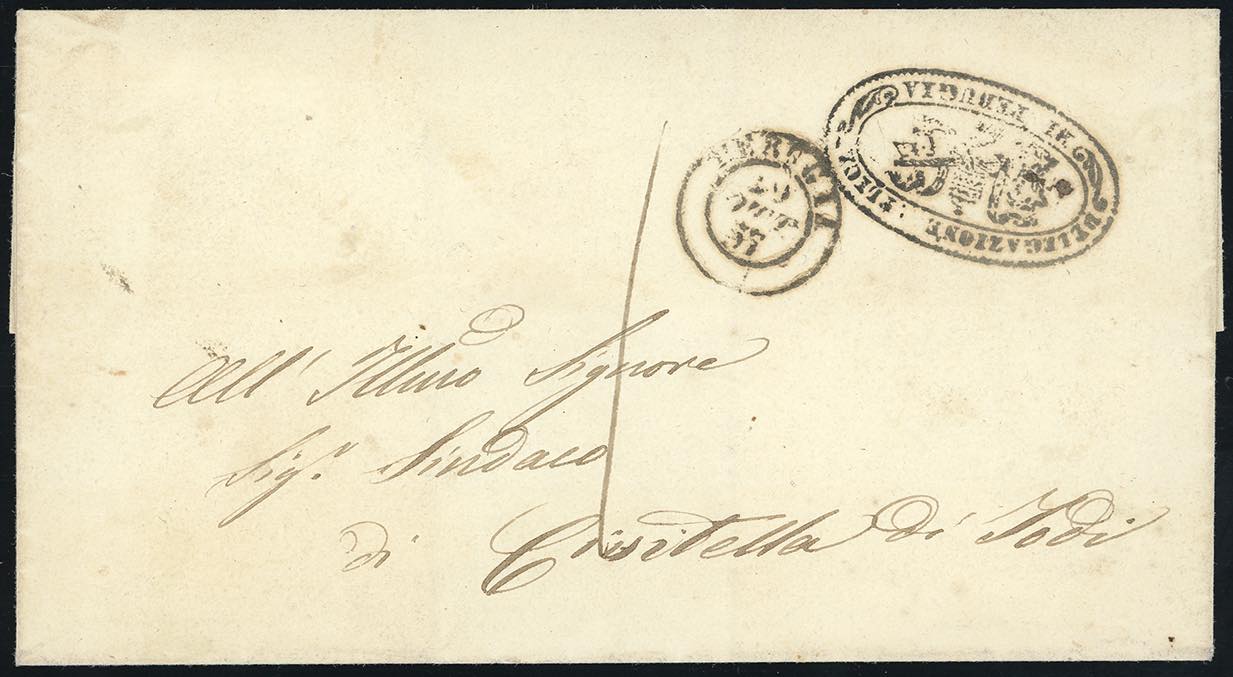 PERUGIA
DELEGAZIONE
DI PERUGIA
1
All' Illmo Signore
Sig.r Sindaco
di Civitella di Todi